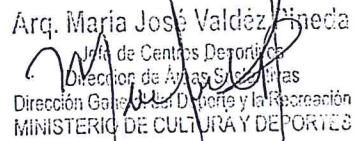 Arq. María José Valdéz Pineda
Jefe de Centros Deportivos
Dirección de Áreas Sustantivas
Dirección General del Deporte y la Recreación
MINISTERIO DE CULTURA Y DEPORTES